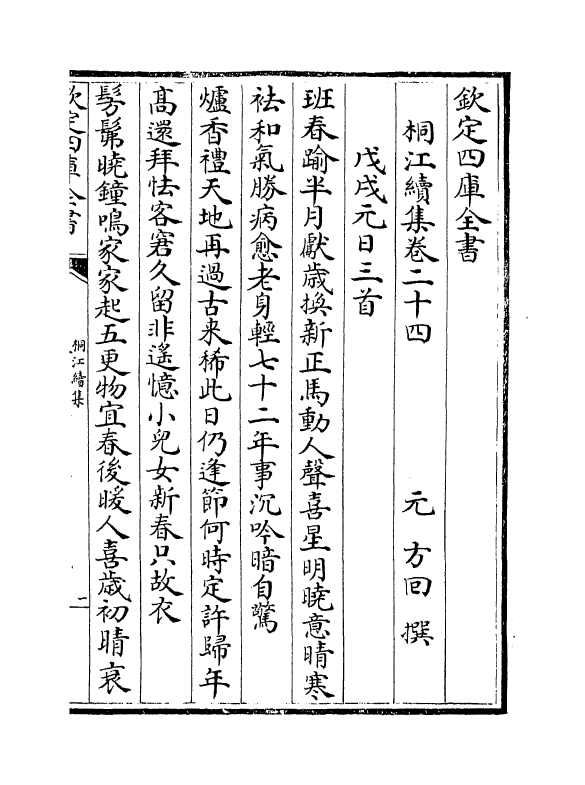 欽定四庫全書
桐江續集卷二十四
元 方回 撰
戊戌元日三首
班春踰半月獻歲換新正馬動人聲喜星明曉意晴寒
袪和氣勝病愈老身輕七十二年事沉吟暗自驚
爐香禮天地再過古来稀此日仍逢節何時定許歸年
髙還拜怯客窘久留非遙憶小兒女新春只故衣
髣髴曉鐘鳴家家起五更物宜春後暖人喜歲初晴衰
欽定四庫全書
桐江續集
二